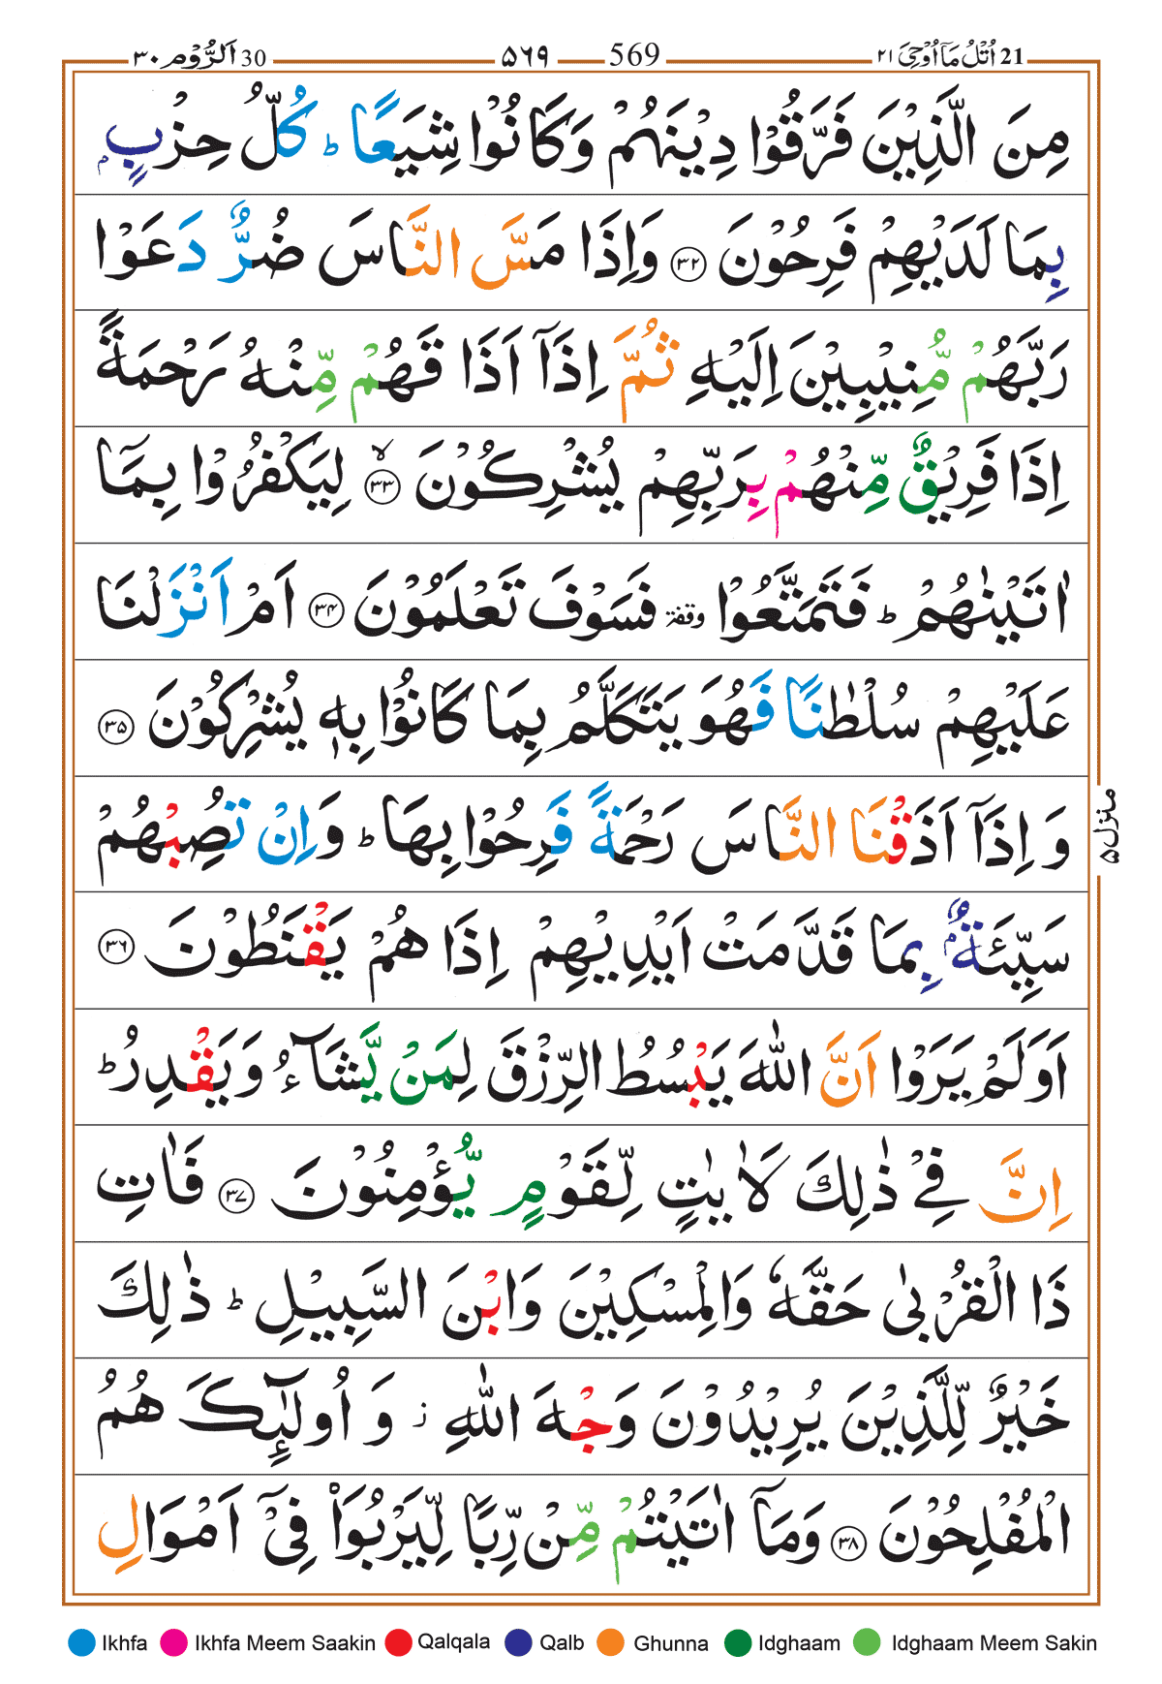 اَلرُّوْم ٣٠ 30
۵٦٩ 569
اُتْلُ مَاۤ اُوْحِیَ ٢١ 21
مِنَ الَّذِيْنَ فَرَّقُوْا دِيْنَهُمْ وَكَانُوْا شِيَعًا ؕ كُلُّ حِزْبٍۭ
بِمَا لَدَيْهِمْ فَرِحُوْنَ ﴿۳۲﴾ وَاِذَا مَسَّ النَّاسَ ضُرٌّ دَعَوْا
رَبَّهُمْ مُّنِيْبِيْنَ اِلَيْهِ ثُمَّ اِذَاۤ اَذَا قَهُمْ مِّنْهُ رَحْمَةً
اِذَا فَرِيْقٌ مِّنْهُمْ بِرَبِّهِمْ يُشْرِكُوْنَ ۙ﴿۳۳﴾ لِيَكْفُرُوْا بِمَاۤ
اٰتَيْنٰهُمْ ؕ فَتَمَتَّعُوْا وقفة فَسَوْفَ تَعْلَمُوْنَ ﴿۳۴﴾ اَمْ اَنْزَلْنَا
عَلَيْهِمْ سُلْطٰنًا فَهُوَ يَتَكَلَّمُ بِمَا كَانُوْا بِهٖ يُشْرِكُوْنَ ﴿۳۵﴾
وَ اِذَاۤ اَذَقْنَا النَّاسَ رَحْمَةً فَرِحُوْا بِهَا ؕ وَاِنْ تُصِبْهُمْ
سَيِّئَةٌۢ بِمَا قَدَّمَتْ اَيْدِيْهِمْ اِذَا هُمْ يَقْنَطُوْنَ ﴿۳۶﴾
اَوَلَمْ يَرَوْا اَنَّ اللّٰهَ يَبْسُطُ الرِّزْقَ لِمَنْ يَّشَآءُ وَيَقْدِرُ ؕ
اِنَّ فِىْ ذٰلِكَ لَاٰيٰتٍ لِّقَوْمٍ يُّؤْمِنُوْنَ ﴿۳۷﴾ فَاٰتِ
ذَا الْقُرْبٰى حَقَّهٗ وَالْمِسْكِيْنَ وَابْنَ السَّبِيْلِ ؕ ذٰلِكَ
خَيْرٌ لِّلَّذِيْنَ يُرِيْدُوْنَ وَجْهَ اللّٰهِ ز وَ اُولٰٓئِكَ هُمُ
الْمُفْلِحُوْنَ ﴿۳۸﴾ وَمَاۤ اٰتَيْتُمْ مِّنْ رِّبًا لِّيَرْبُوَا۟ فِىْۤ اَمْوَالِ
منزل۵
Ikhfa Ikhfa Meem Saakin Qalqala Qalb Ghunna Idghaam Idghaam Meem Sakin